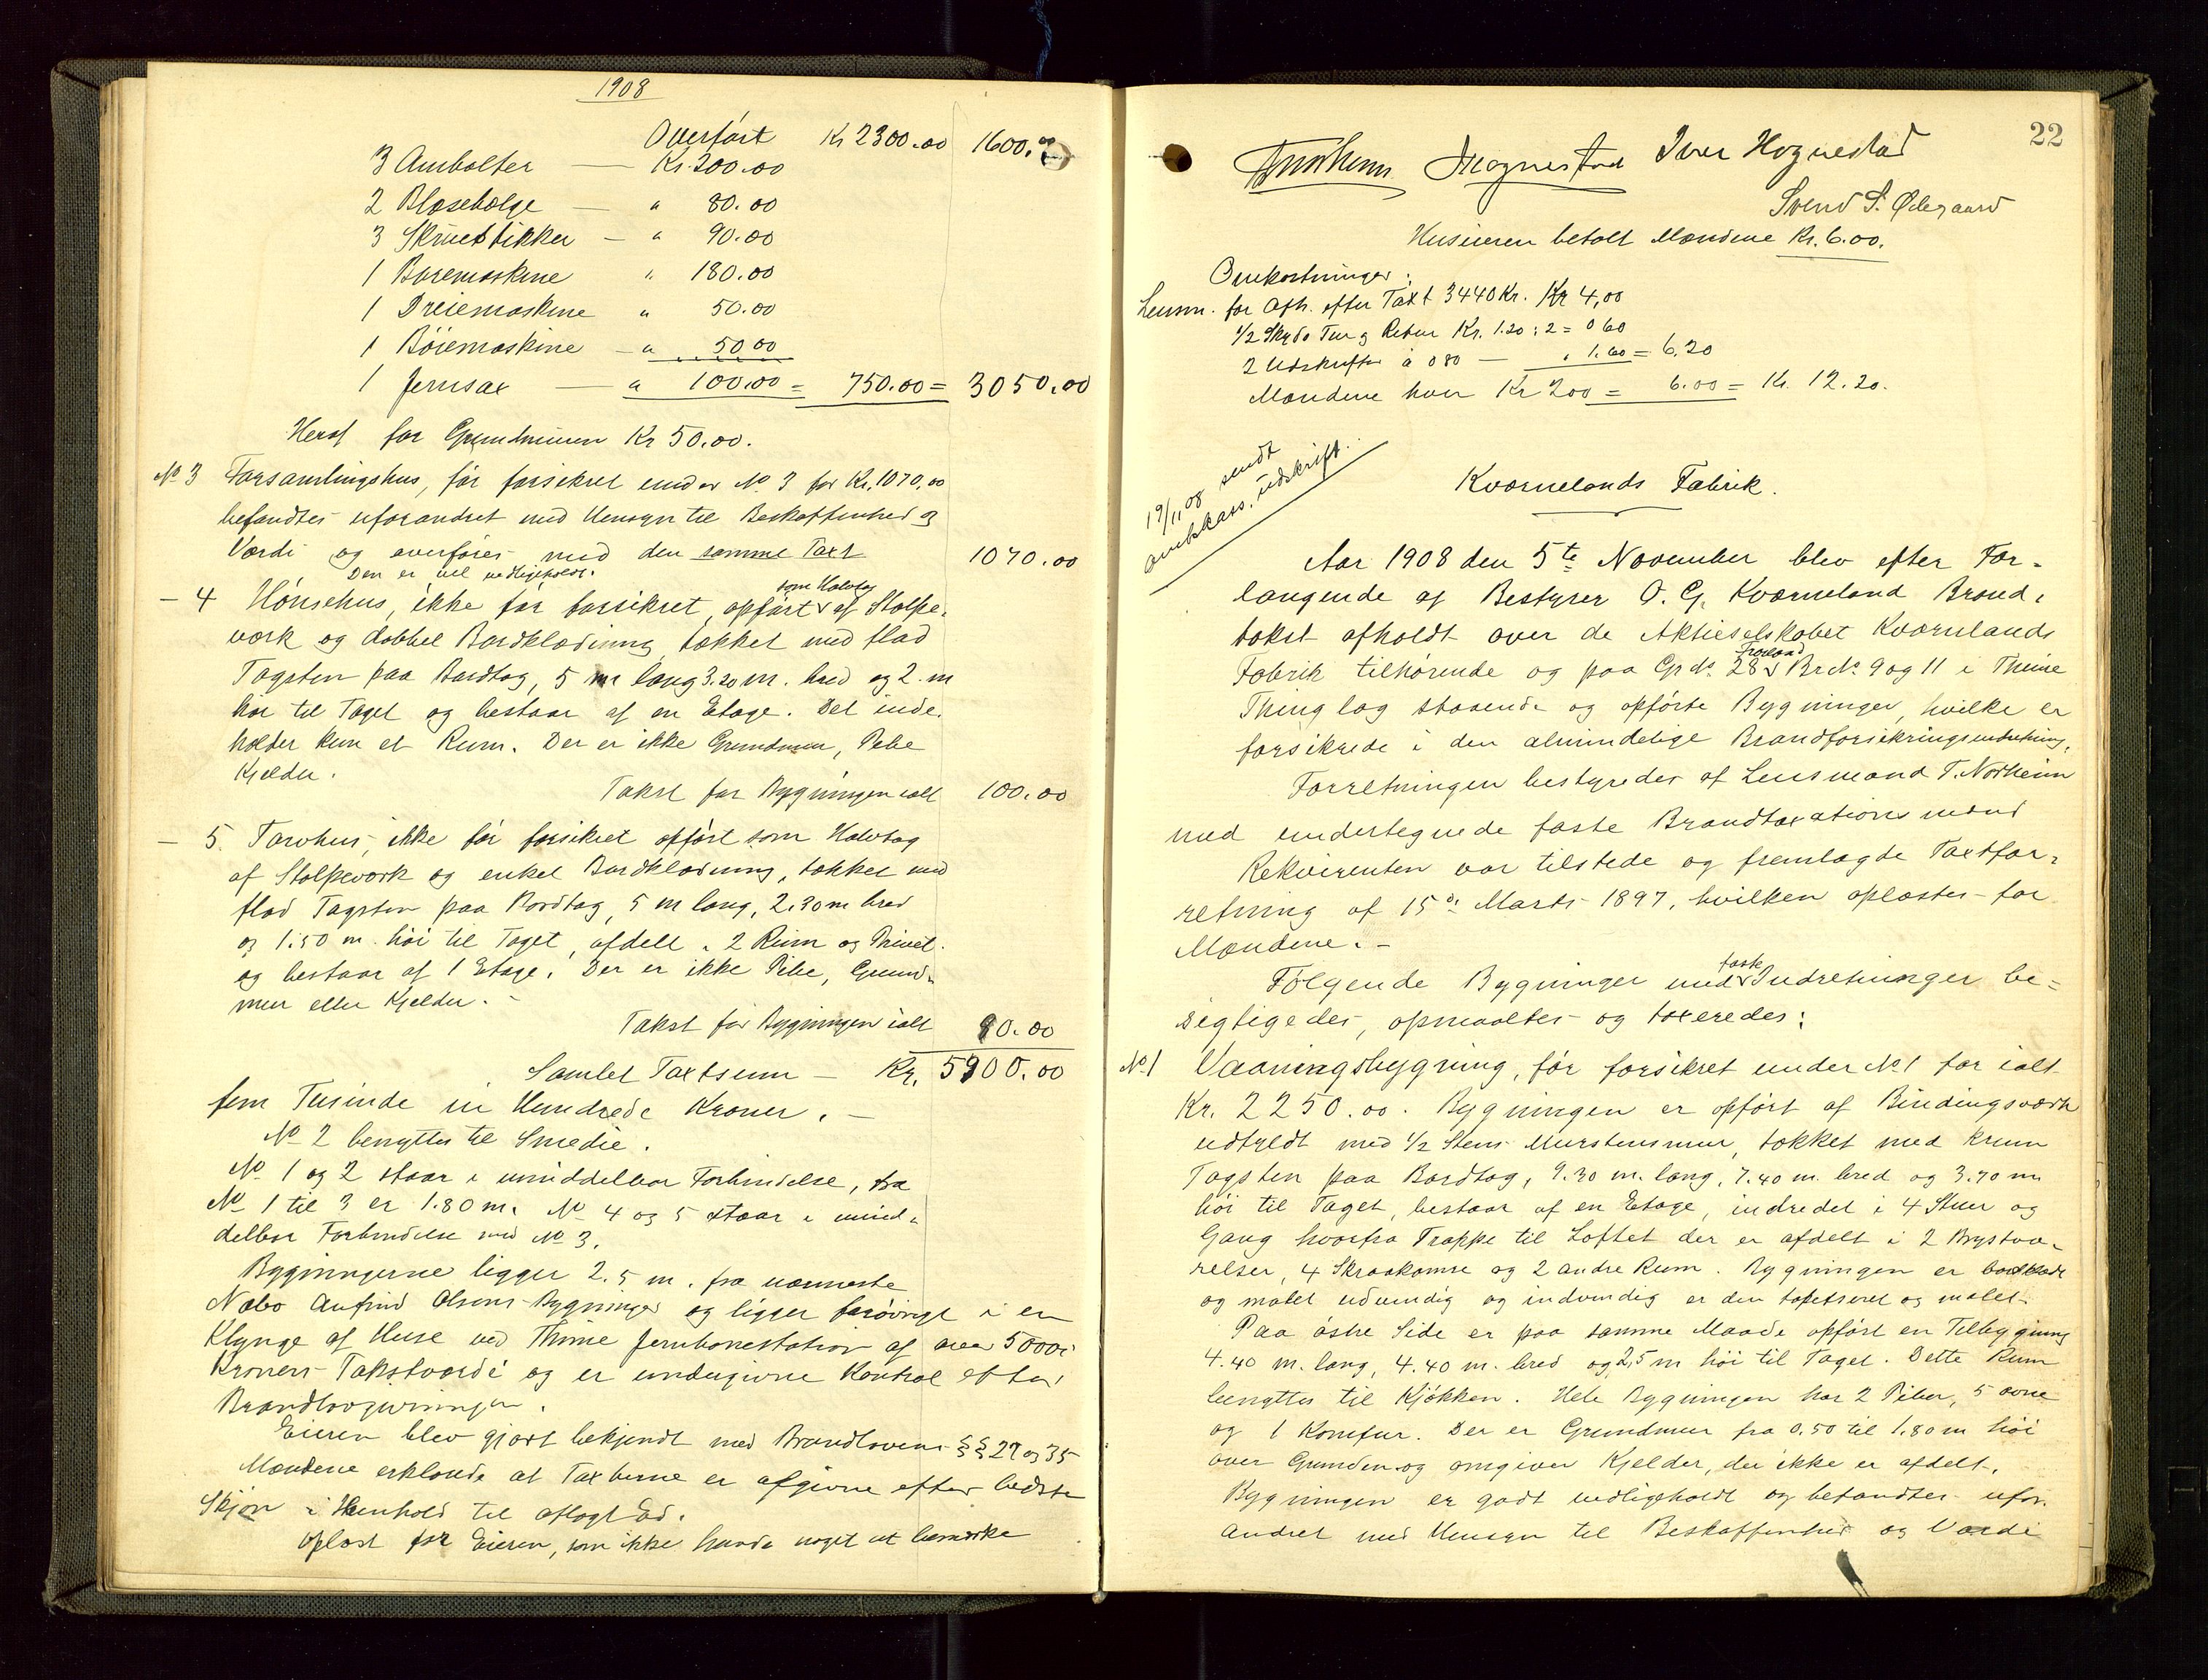 1908
Overført Kr 2300.00 1600.00
3 Ambolter — Kr. 200.00
2 Blæsebelge — " 80.00
3 Skruestikker — " 90.00
1 Boremaskine " 180.00
1 Dreiemaskine " 50.00
1 Bøiemaskine — " 50 00
1 Jernsax — " 100.00 = 750.00 = 3050.00
Heraf for Grundmuren Kr 50.00.
No 3 Forsamlingshus, før forsikret under No 3 for Kr. 1070,00
befandtes uforandret med Hensyn til Beskaffenhed og
Værdi og overføres med den samme Taxt 1070.00
Den er vel vedligeholdt.
— 4 Hønsehus, ikke før forsikret, opført som Halvtag af Stolpe-
værk og dobbel Bordklædning, tækket med flad
Tagsten paa Bordtag, 5 m lang 3.20 m. bred og 2. m
høi til Taget og bestaar af en Etage. Det inde-
holder kun et Rum. Der er ikke Grundmur, Pibe
Kjelder.
Takst for Bygningen ialt 100.00
— 5. Torvhus, ikke før forsikret opført som Halvtag
af Stolpeværk og enkel Bordklædning, tækket med
flad Tagsten paa Bordtag, 5 m lang, 2.30 m bred
og 1.50 m. høi til Taget, afdelt i 2 Rum og Privet.
og bestaar af 1 Etage. Der er ikke Pibe, Grund-
mur eller Kjelder. –
Takst for Bygningen ialt 80.00
Samlet Taxtsum — Kr. 5900.00
fem Tusinde ni Hundrede Kroner. —
No 2 benyttes til Smedie.
No 1 og 2 staar i umiddelbar Forbindelse, fra
No 1 til 3 er 1.80 m. No 4 og 5 staar i umid-
delbar Forbindelse med No 3.
Bygningerne ligger 2.5 m. fra nærmeste
Nabo Anfind Olsens Bygninger og ligger forøvrigt i en
Klynge af Huse ved Thime Jernbanestation af over 5000
Kroners Takstværdi og er undergivne Kontrol efter
Brandlovgivningen.
Eieren blev gjort bekjendt med Brandlovens §§ 27 og 35
Mændene erklærede at Taxterne er afgivne efter bedste
Skjøn i Henhold til aflagt Ed.
Oplæst for Eieren, som ikke havde noget at bemærke
22
Iver Hognestad
Svend S. Ødegaard
Huseieren betalt Mændene Kr. 6.00.
Omkostninger:
Lensm. for Afh. efter Taxt 3440 Kr. Kr 4,00
1/2 Skyds Tur og Retur Kr. 1.20 : 2 = 0 60
2 Udskrifter à 0 80 — " 1.60 = 6.20
Mændene hver Kr 2 00 = 6.00 = Kr. 12.20.
19/11 08 sendt
amtskass. udskrift.
Kværnelands Fabrik.
Aar 1908 den 5te November blev efter For-
langende af Bestyrer O. G. Kværneland Brand-
takst afholdt over de Aktieselskabet Kværnelands
Fabrik tilhørende og paa Gr. No. 28 Frøland Br. No. 9 og 11 i Thime
Thinglag staaende og opførte Bygninger, hvilke er
forsikrede i den almindelige Brandforsikringsindretning.
Forretningen bestyredes af Lensmand T. Norheim
med undertegnede faste Brandtaxationsmænd
Rekvirenten var tilstede og fremlagde Taxtfor-
retning af 15de Marts 1897, hvilken oplæstes for
Mændene. –
Følgende Bygninger med faste Indretninger be-
sigtigedes, opmaaltes og taxeredes:
No 1 Vaaningsbygning, før forsikret under No 1 for ialt
Kr. 2250.00. Bygningen er opført af Bindingsværk
udfyldt med 1/2 Stens Murstensmur, tækket med krum
Tagsten paa Bordtag, 9.30 m. lang, 7.40 m. bred og 3.70 m
høi til Taget, bestaar af en Etage, indredet i 4 Stuer og
Gang hvorfra Trappe til Loftet der er afdelt i 2 Brystvæ-
relser, 4 Skraakamre og 2 andre Rum. Bygningen er bordklædt
og malet udvendig og indvendig er den tapetseret og malet.
Paa østre Side er paa samme Maade opført en Tilbygning
4.40 m. lang, 4.40 m. bred og 2,5 m høi til Taget. Dette Rum
benyttes til Kjøkken. Hele Bygningen har 2 Piber, 5 ovne
og 1 Komfur. Der er Grundmur fra 0.50 til 1.80 m høi
over Grunden og omgiver Kjelder, der ikke er afdelt.
Bygningen er godt vedligeholdt og befandtes ufor-
andret med Hensyn til Beskaffenhed og Værdi